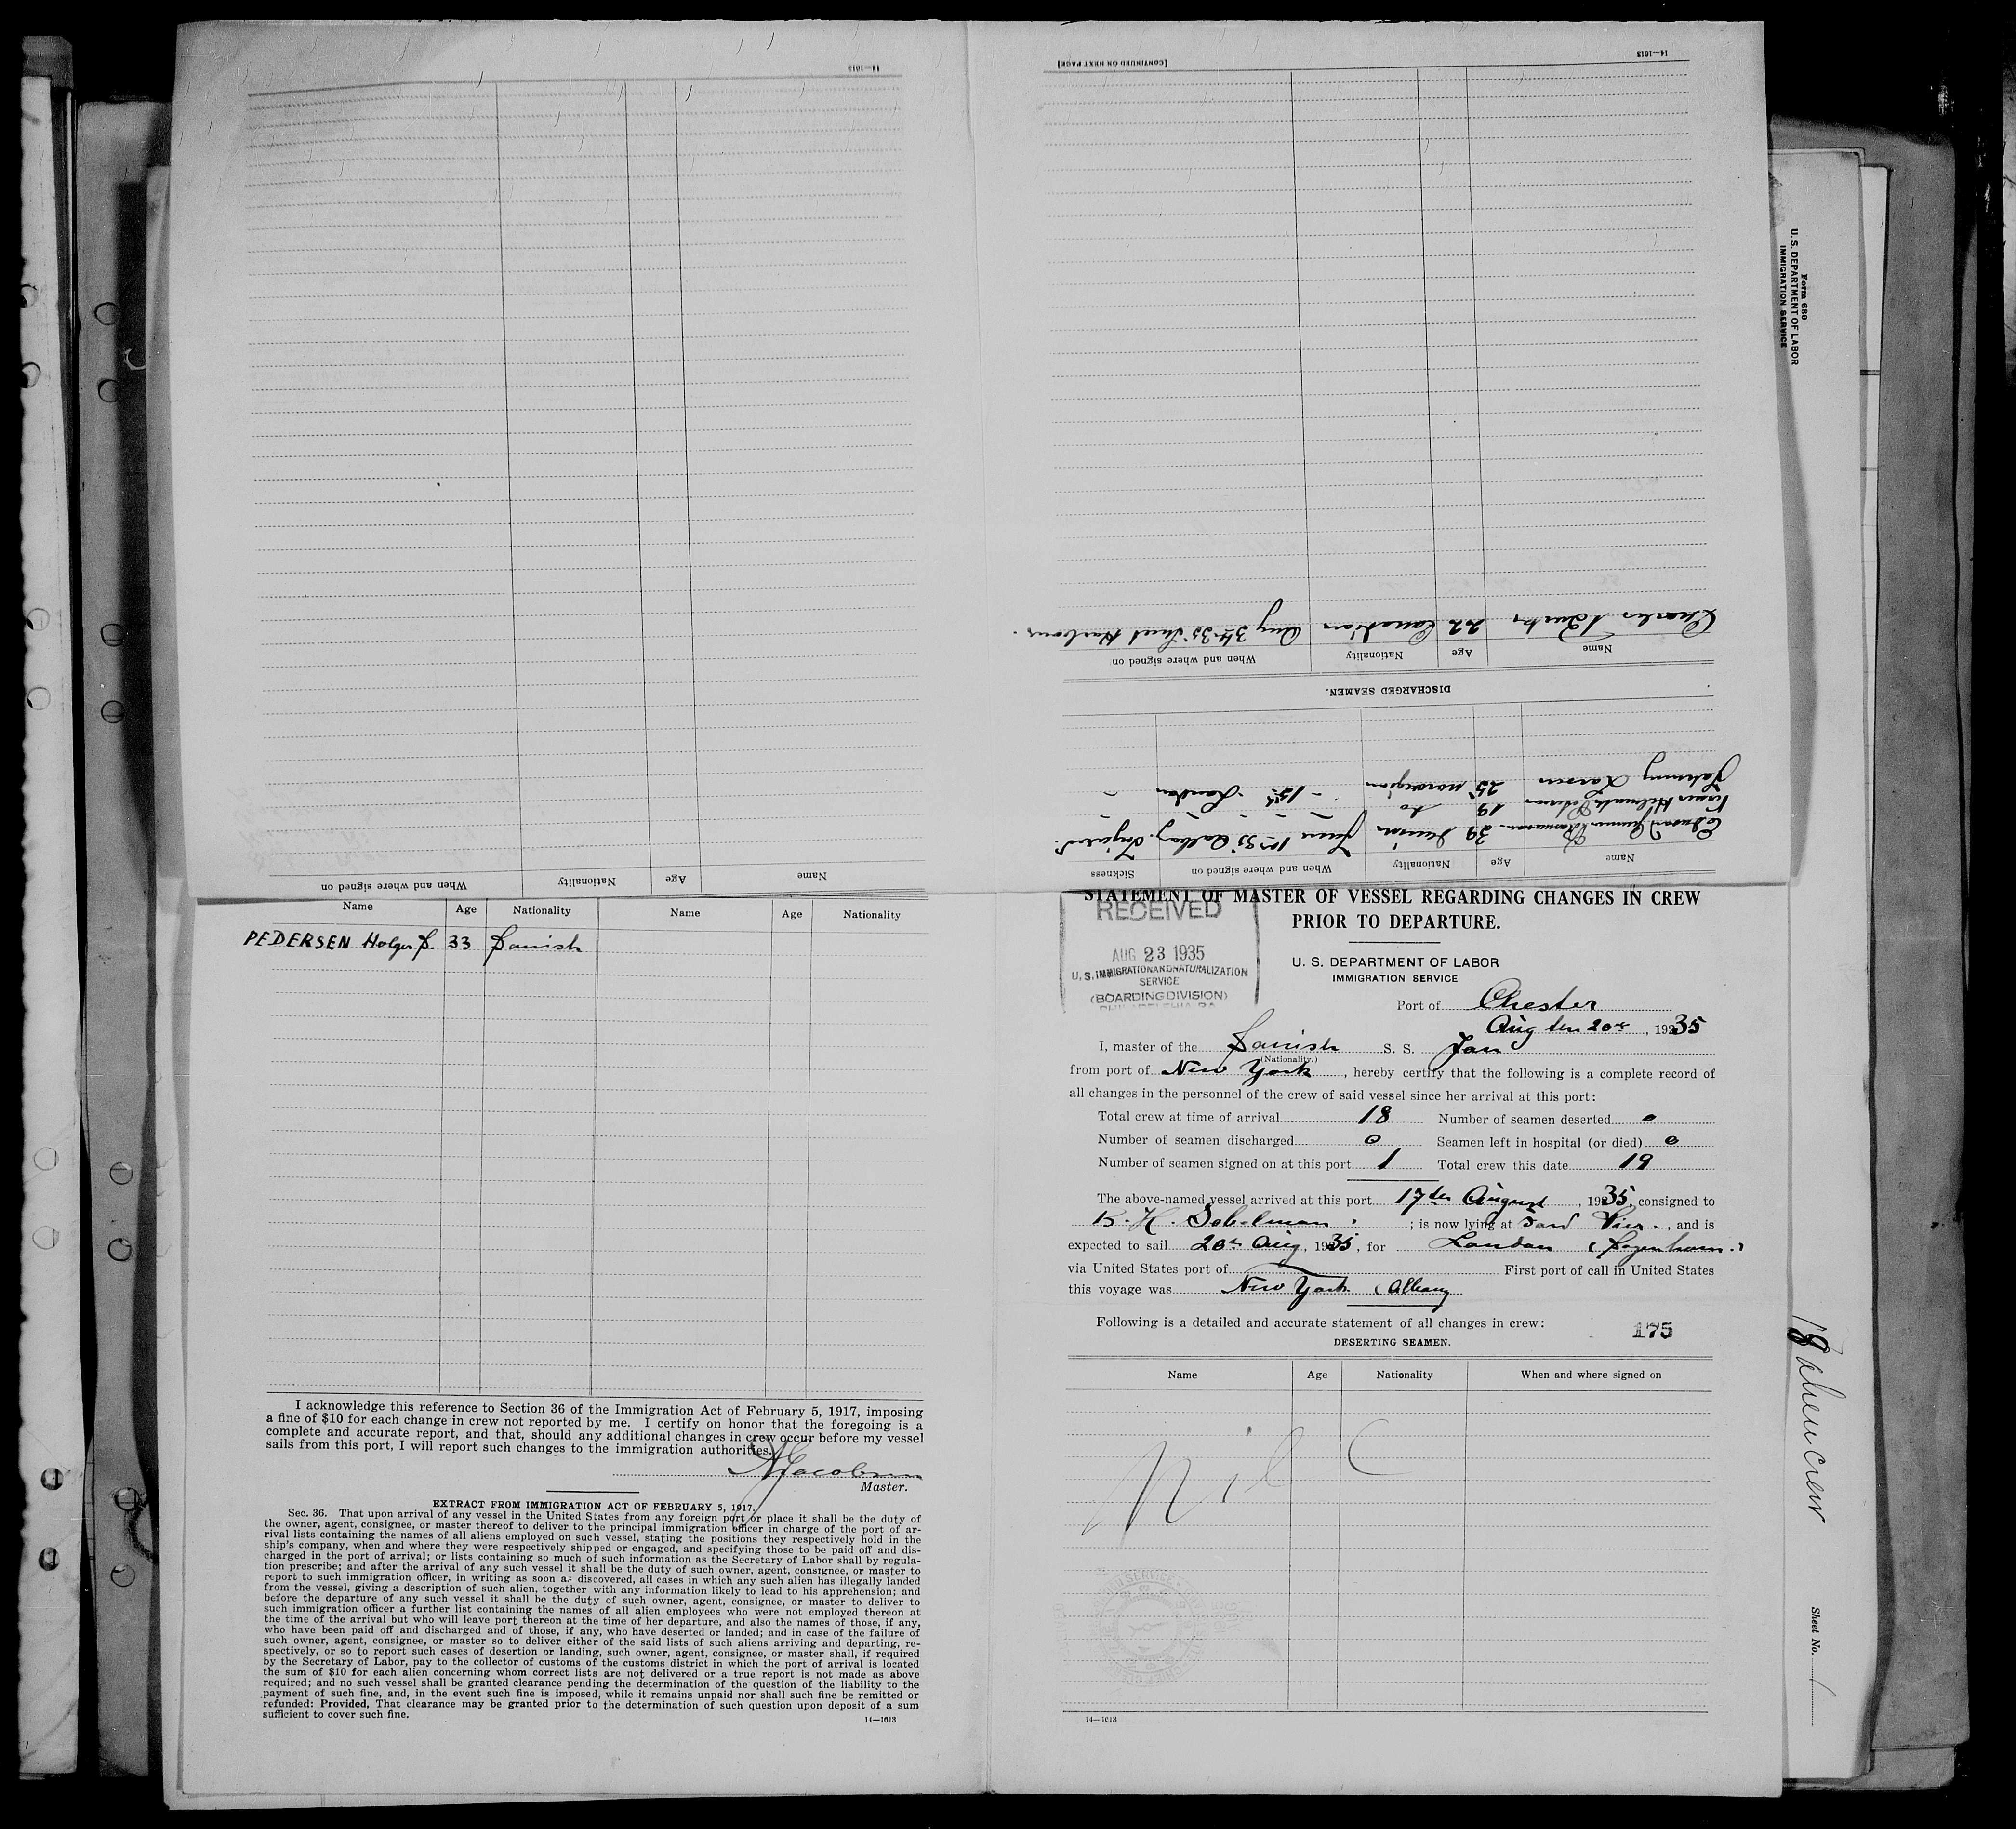 STATEMENT OF MASTER OF VESSEL REGARDING CHANGES IN CREW
PRIOR TO DEPARTURE.
U. S. DEPARTMENT OF LABOR
IMMIGRATION SERVICE
RECEIVED
AUG 23 1935
U. S. IMMIGRATION AND NATURALIZATION
SERVICE
(BOARDING DIVISION)
PHILADELPHIA PA
Port of Chester
Aug 20, 1935
I, master of the Danish S. S. Jan
(Nationality.)
from port of New York, hereby certify that the following is a complete record of
all changes in the personnel of the crew of said vessel since her arrival at this port:
Total crew at time of arrival 18 Number of seamen deserted 0
Number of seamen discharged 0 Seamen left in hospital (or died) 0
Number of seamen signed on at this port 1 Total crew this date 19
The above-named vessel arrived at this port 17th August, 1935, consigned to
; is now lying at Ford Pier, and is
expected to sail 20th Aug, 1935, for London (Dagenham.)
via United States port of First port of call in United States
this voyage was New York (Albany
Following is a detailed and accurate statement of all changes in crew:
175
DESERTING SEAMEN.
Name Age Nationality When and where signed on
Nil
14—1613
Name Age Nationality Name Age Nationality
PEDERSEN Holger D. 33 Danish
I acknowledge this reference to Section 36 of the Immigration Act of February 5, 1917, imposing
a fine of $10 for each change in crew not reported by me. I certify on honor that the foregoing is a
complete and accurate report, and that, should any additional changes in crew occur before my vessel
sails from this port, I will report such changes to the immigration authorities.
Jacobsen
Master.
EXTRACT FROM IMMIGRATION ACT OF FEBRUARY 5, 1917.
Sec. 36. That upon arrival of any vessel in the United States from any foreign port or place it shall be the duty of
the owner, agent, consignee, or master thereof to deliver to the principal immigration officer in charge of the port of ar-
rival lists containing the names of all aliens employed on such vessel, stating the positions they respectively hold in the
ship's company, when and where they were respectively shipped or engaged, and specifying those to be paid off and dis-
charged in the port of arrival; or lists containing so much of such information as the Secretary of Labor shall by regula-
tion prescribe; and after the arrival of any such vessel it shall be the duty of such owner, agent, consignee, or master to
report to such immigration officer, in writing as soon as discovered, all cases in which any such alien has illegally landed
from the vessel, giving a description of such alien, together with any information likely to lead to his apprehension; and
before the departure of any such vessel it shall be the duty of such owner, agent, consignee, or master to deliver to
such immigration officer a further list containing the names of all alien employees who were not employed thereon at
the time of the arrival but who will leave port thereon at the time of her departure, and also the names of those, if any,
who have been paid off and discharged and of those, if any, who have deserted or landed; and in case of the failure of
such owner, agent, consignee, or master so to deliver either of the said lists of such aliens arriving and departing, re-
spectively, or so to report such cases of desertion or landing, such owner, agent, consignee, or master shall, if required
by the Secretary of Labor, pay to the collector of customs of the customs district in which the port of arrival is located
the sum of $10 for each alien concerning whom correct lists are not delivered or a true report is not made as above
required; and no such vessel shall be granted clearance pending the determination of the question of the liability to the
payment of such fine, and, in the event such fine is imposed, while it remains unpaid nor shall such fine be remitted or
refunded: Provided, That clearance may be granted prior to the determination of such question upon deposit of a sum
sufficient to cover such fine.
14—1613
Name Age Nationality When and where signed on Sickness
29 Albany
19 do
Larsen 25 Norwegian London
DISCHARGED SEAMEN.
Name Age Nationality When and where signed on
Charles 22 Canadian Aug
[CONTINUED ON NEXT PAGE]
14—1613
Name Age Nationality When and where signed on
14—1613
Form 680
U. S. DEPARTMENT OF LABOR
IMMIGRATION SERVICE
18 alien crew
Sheet No. 1